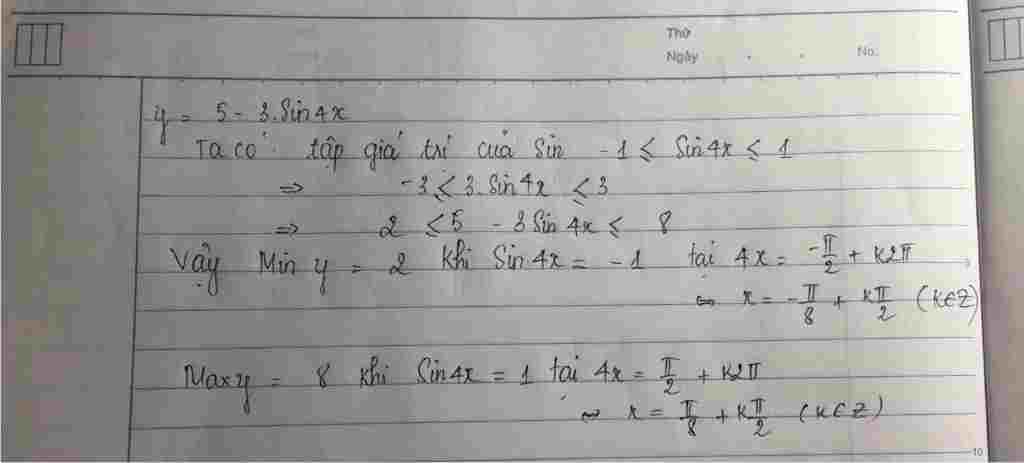 Thứ
Ngày . . No.
y = 5 - 3.Sin4x
Ta có: tập giá trị của Sin -1 ≤ Sin4x ≤ 1
⇒ -3 ≤ 3.Sin4x ≤ 3
⇒ 2 ≤ 5 - 3Sin4x ≤ 8
Vậy Min y = 2 khi Sin4x = -1 tại 4x = -π/2 + k2π
⇔ x = -π/8 + kπ/2 (k∈Z)
Maxy = 8 khi Sin4x = 1 tại 4x = π/2 + k2π
⇔ x = π/8 + kπ/2 (k∈Z)
10